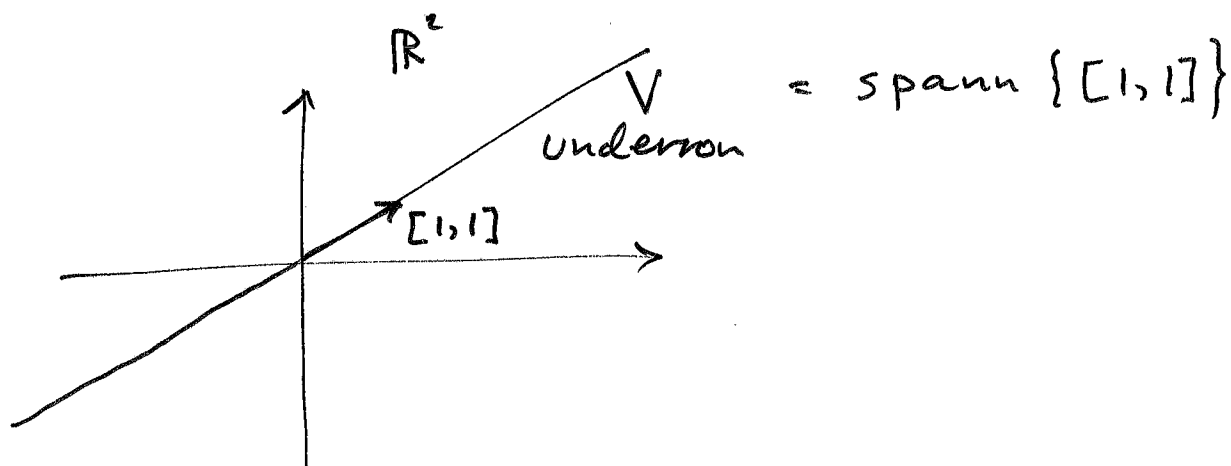 ℝ²
V = spann {[1,1]}
underrom
[1,1]